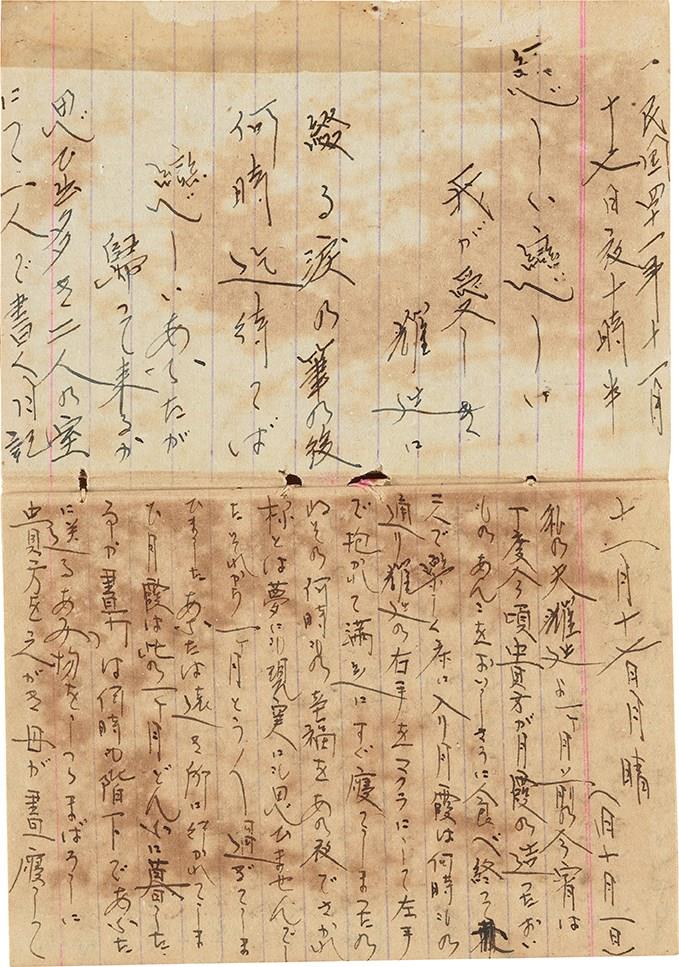 民国四十一年十一月
十七日夜十時半
戀しい戀しい
我が愛しき
耀廷に
綴る涙の筆の後
何時迄待てば
戀しいあなたが
歸って来るか
思ひ出多き二人の室
にて一人で書く日記
十一月十七日月晴
私の夫耀廷よ一ヶ月以前の今宵は
丁度今頃貴方が月霞の造ったおい
しいあんこをおいしさうに食べ終って
二人で楽しく床に入り月霞は何時もの
通り耀廷の右手をマクラにして左手
で抱かれて満足にすぐ寝てしまったの
何時もの幸福をあの夜でさかれ
様とは夢にも現実にも思ひませんでし
たそれから一ヶ月とう〱過ぎてしま
ひましたあなたは遠き所に行かれてしま
ひ月霞は此の一ヶ月どんなに暮した
るか晝間は何時も階下であなた
に送るあみ物をしつゝまぼろしに
貴方をゑがき母が晝寝して